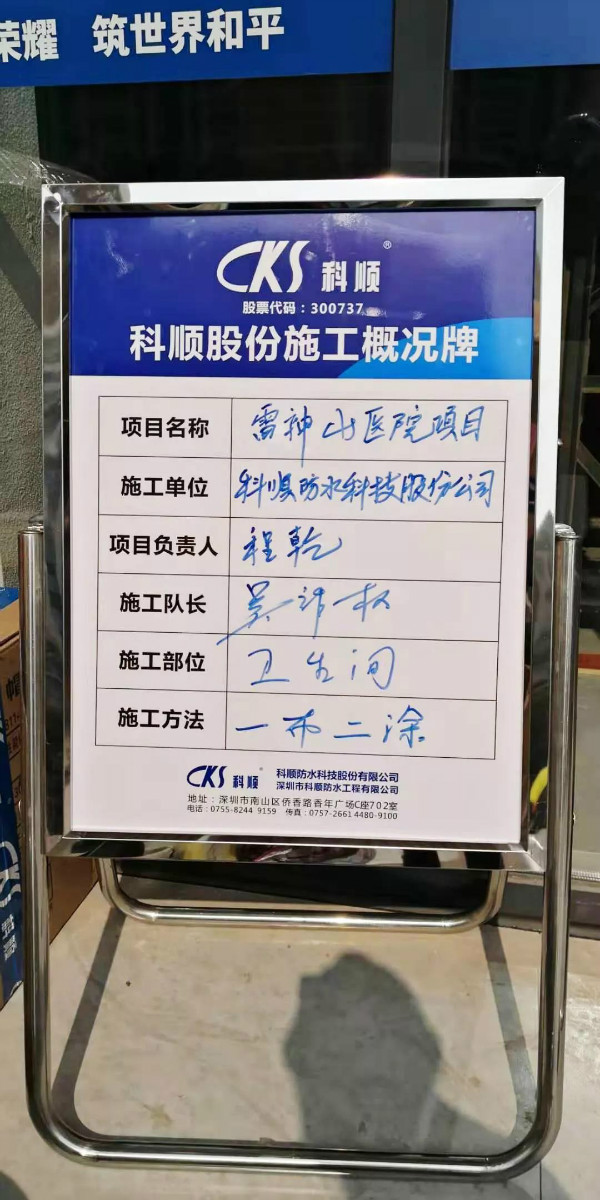 荣耀 筑世界和平
CKS 科顺 ®
股票代码：300737
科顺股份施工概况牌
项目名称 雷神山医院项目
施工单位 科顺防水科技股份公司
项目负责人 程乾
施工队长 权
施工部位 卫生间
施工方法 一布二涂
CKS 科顺 科顺防水科技股份有限公司
深圳市科顺防水工程有限公司
地址：深圳市南山区侨香路香年广场C座702室
电话：0755-8244 9159 传真：0757-2661 4480-9100
CKS